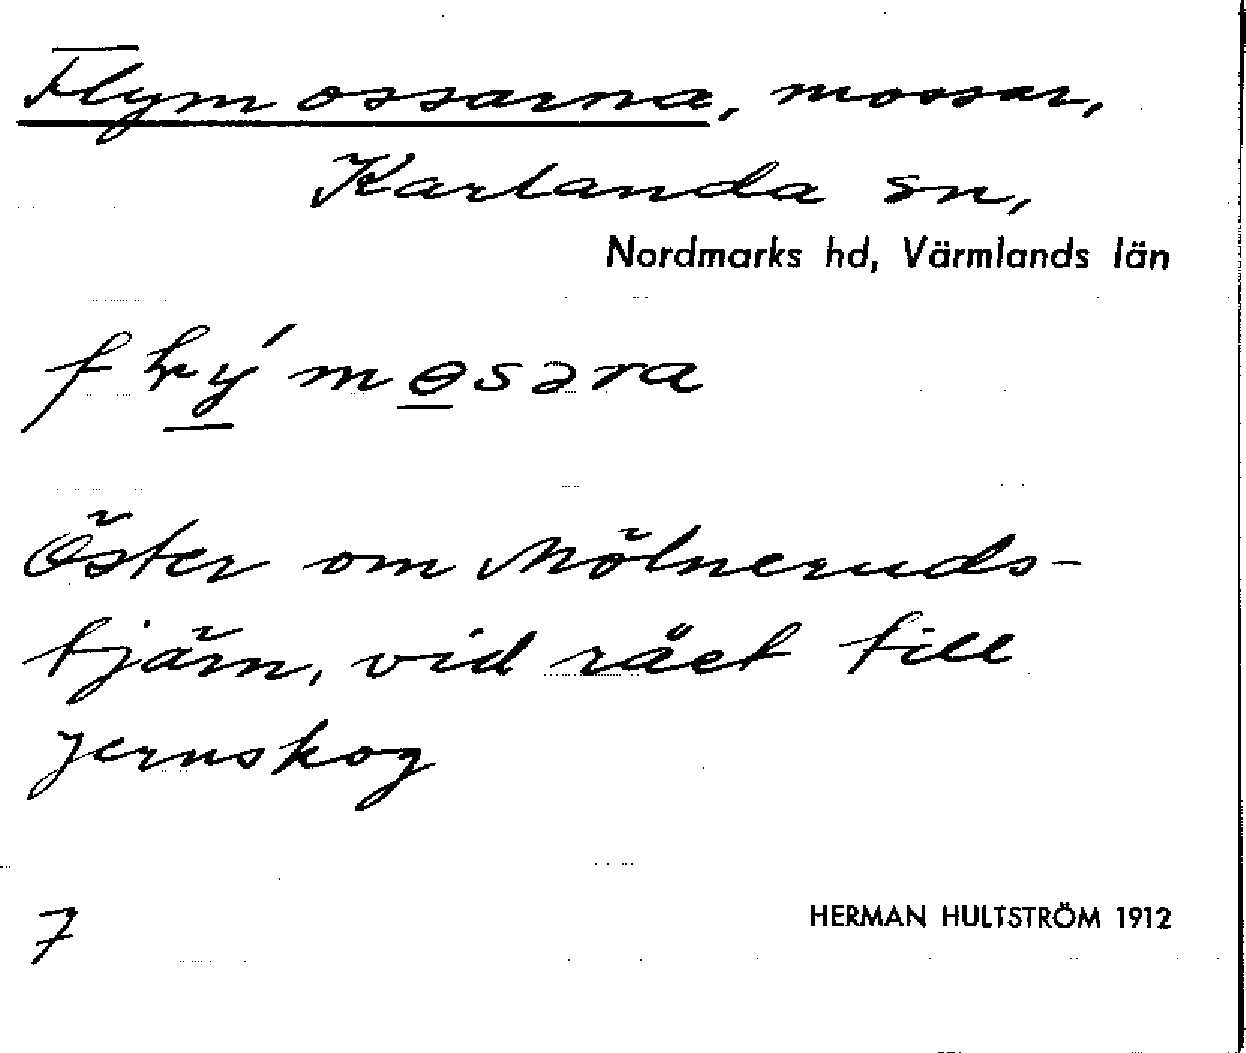 Flymossarna, mossar,
Karlanda sn,
Nordmarks hd, Värmlands län
Öster om Mölneruds-
tjärn, vid rået till
Jernskog
7
HERMAN HULTSTRÖM 1912